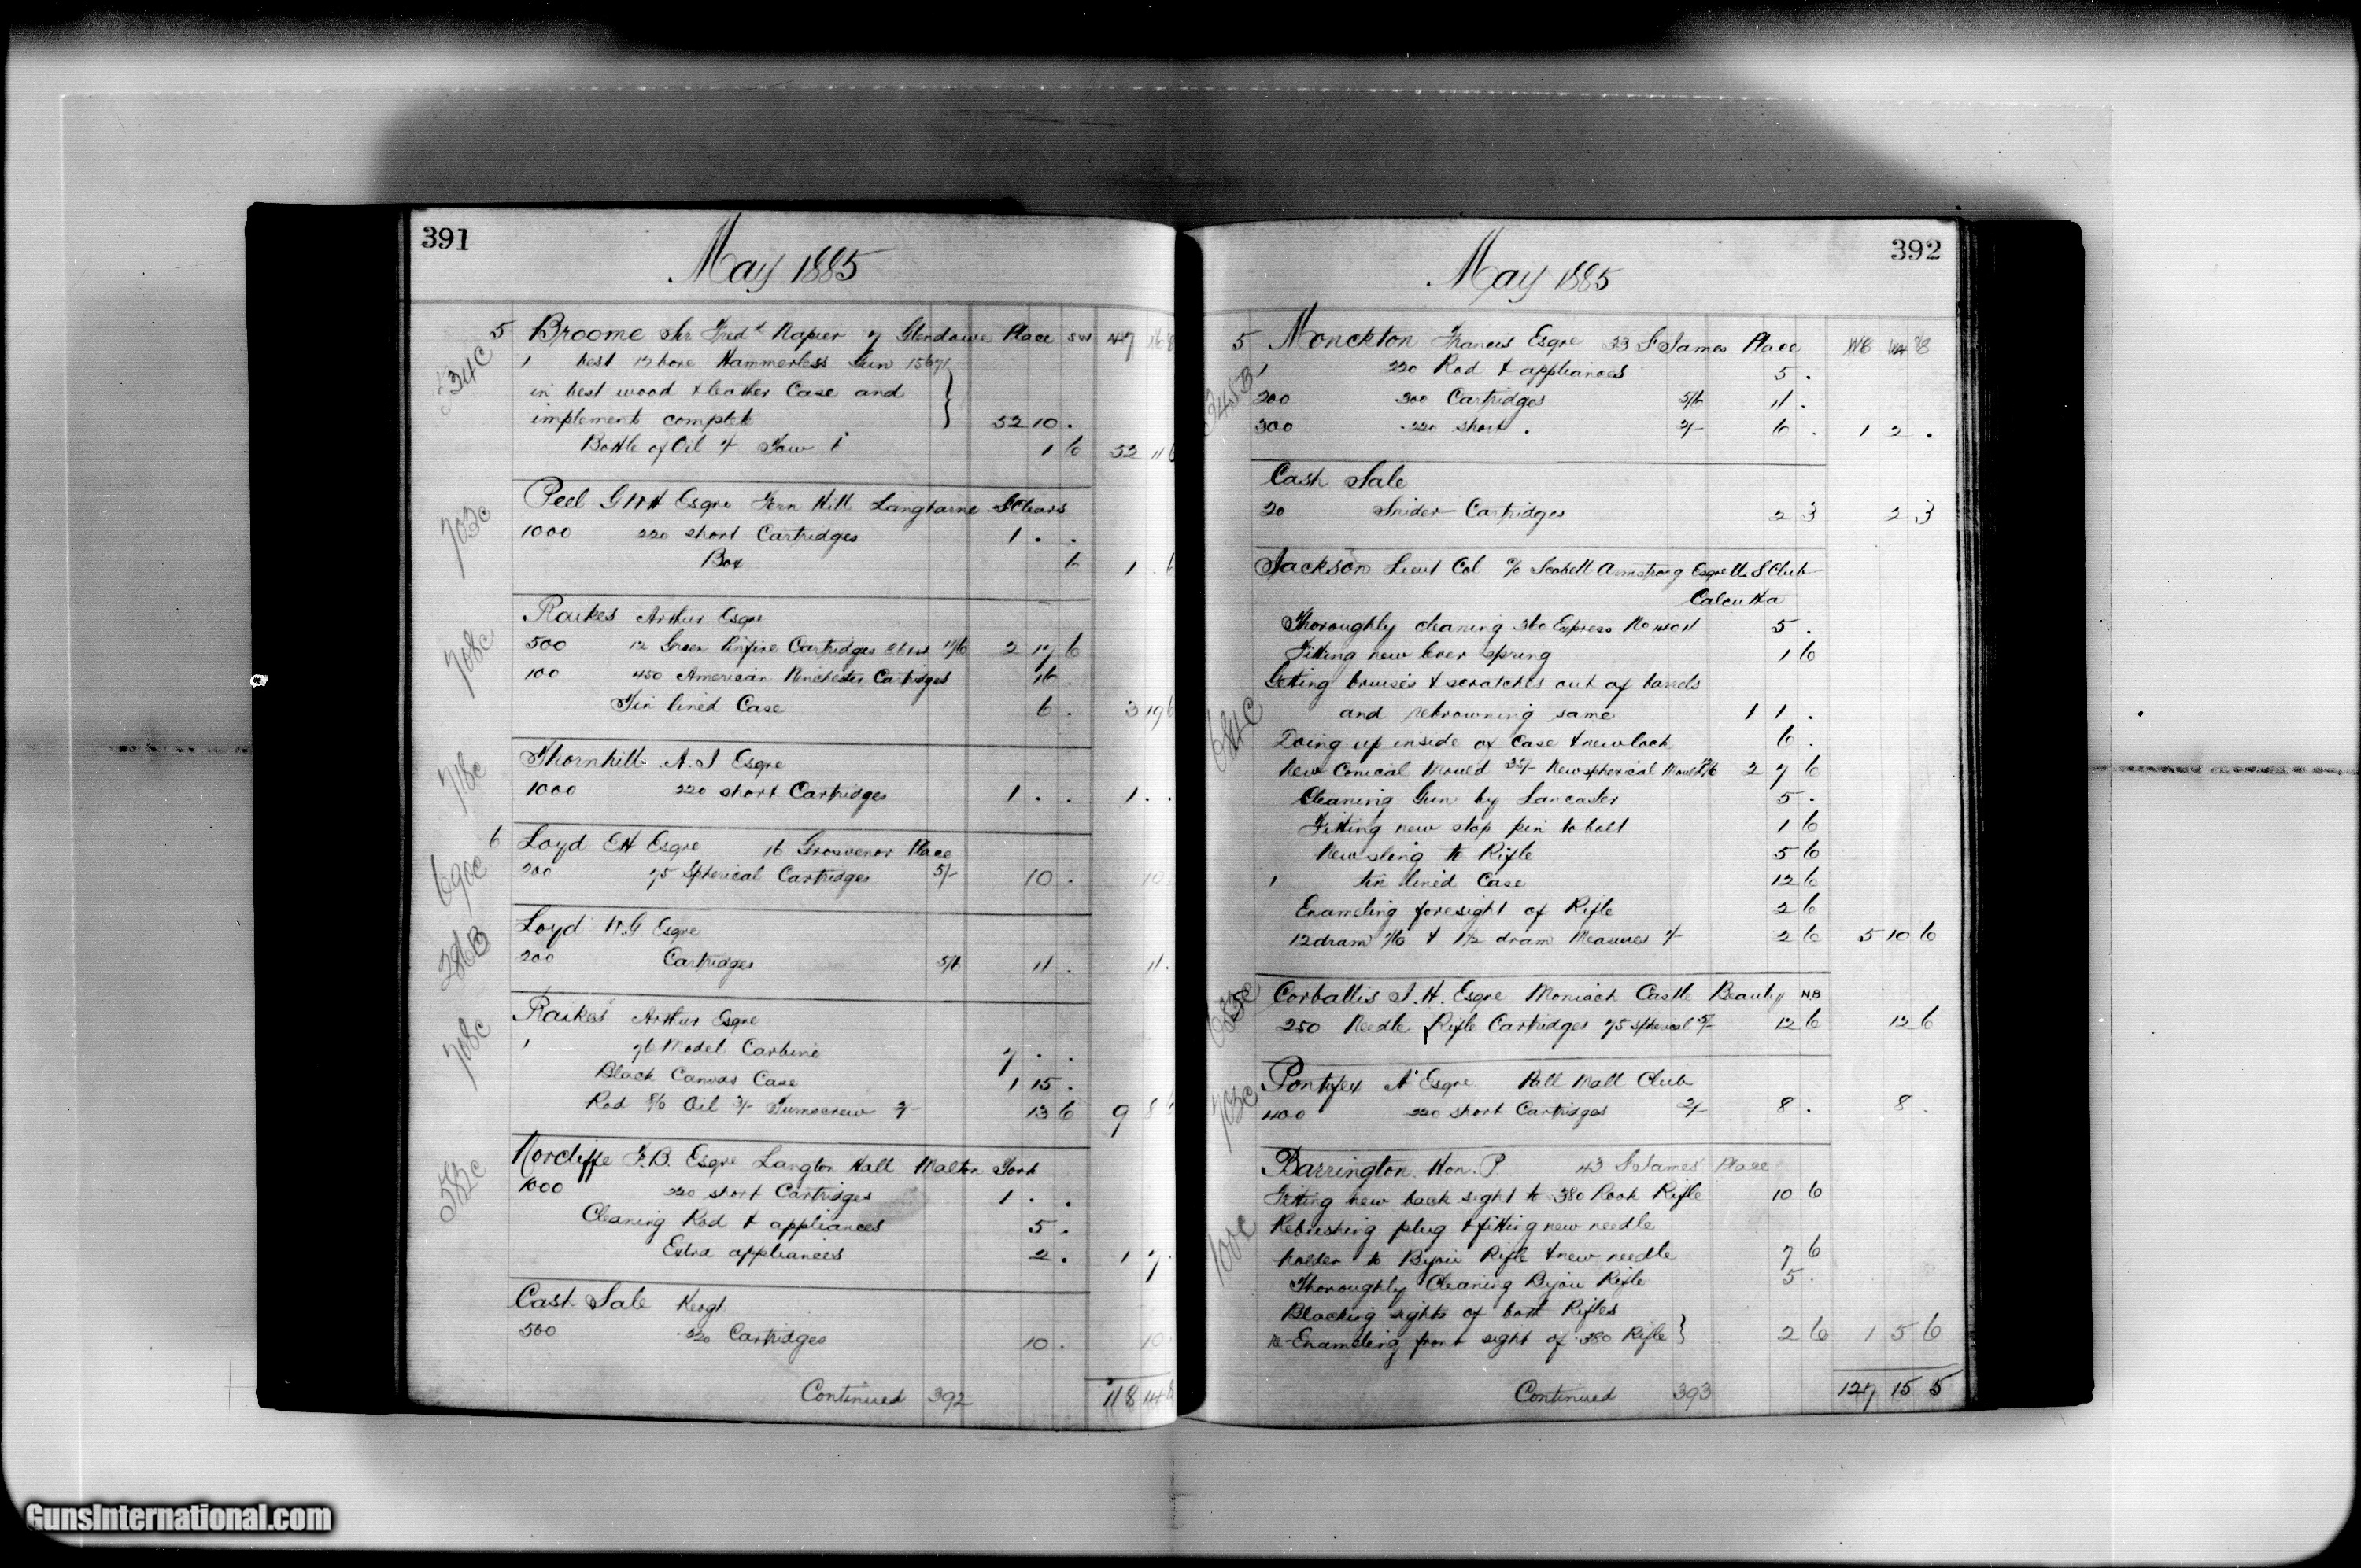 391
May 1885
5 Broome Sir Fredk Napier 7 Glendower Place SW 47 16 8
534C
1 best 12 bore Hammerless Gun 15671
in best wood & leather Case and
implements complete 52 10 .
Bottle of Oil 1/- 1 6 52 11 6
703C
Peel G W H Esqre Fern Hill Langharne St Clears
1000 220 short Cartridges 1 . .
Box 6 1 . 6
708C
Raikes Arthur Esqre
500 12 Green Pinfire Cartridges 11/6 2 17 6
100 450 American Winchester Cartridges 16
Tin lined Case 6 . 3 19 6
718C
Thornhill A. J Esqre
1000 220 short Cartridges 1 . . 1 . .
6 Loyd E H Esqre 16 Grosvenor Place
690C
200 75 Spherical Cartridges 5/- 10 . 10
286B
Loyd W. G. Esqre
200 Cartridges 5/6 11 . 11 .
708C
Raikes Arthur Esqre
1 76 Model Carbine 7 . .
Black Canvas Case 1 15 .
Rod 8/6 Oil 3/- Turnscrew 2/- 13 6 9 8
582C
Norcliffe F. B. Esqre Langton Hall Malton York
1000 220 short Cartridges 1 . .
Cleaning Rod & appliances 5 .
Extra appliances 2 . 1 7 .
Cash Sale
500 .220 Cartridges 10 . 10
Continued 392 118 14 8
392
May 1885
5 Monckton Francis Esqre 33 St James Place 118 14 8
345B
1 220 Rod & appliances 5 .
200 300 Cartridges 5/6 11 .
300 .220 short . 2/- 6 . 1 2 .
Cash Sale
20 Snider Cartridges 2 3 2 3
Jackson Lieut Col c/o Scobell Armstrong Esqre U. S Club
Calcutta
684C
Thoroughly cleaning 360 Express No 5 .
Fitting new lever spring 1 6
Getting bruises & scratches out of barrels
and rebrowning same 1 1 .
Doing up inside of Case & new lock 6 .
New Conical Mould 35/- New spherical Mould 2 7 6
Cleaning Gun by Lancaster 5 .
Fitting new stop pin to bolt 1 6
New sling to Rifle 5 6
1 tin lined Case 12 6
Enameling foresight of Rifle 2 6
12 dram 1/6 & 1 1/2 dram Measures 1/- 2 6 5 10 6
655C
Corballis J. H. Esqre Moniack Castle Beauly N.B
250 Needle Rifle Cartridges 75 Spherical 5/- 12 6 12 6
703C
Pontifex A Esqre Pall Mall Club
400 220 short Cartridges 2/- 8 . 8 .
Barrington Hon. P. 43 St James' Place
100C
Fitting new back sight to .380 Rook Rifle 10 6
Rebushing plug & fitting new needle
holder to Bijou Rifle & new needle 7 6
Thoroughly Cleaning Bijou Rifle 5 .
Blacking sights of both Rifles
re-Enameling front sight of .380 Rifle 2 6 1 5 6
Continued 393 127 15 5
GunsInternational.com